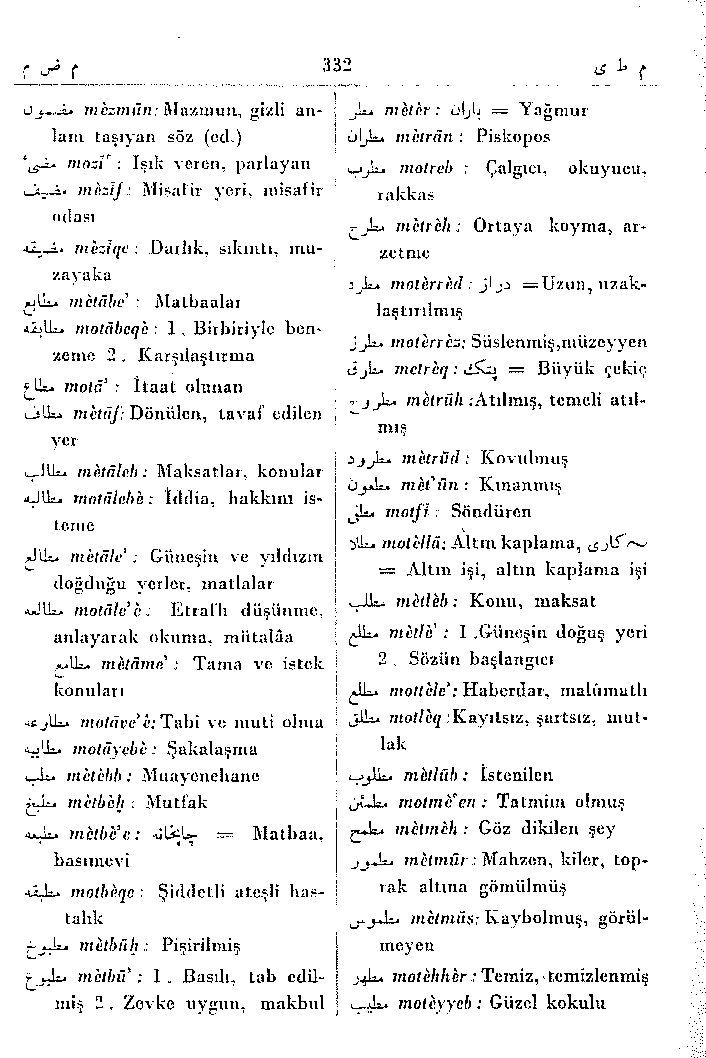 م ض م
332
م ط ی
مضمون mèzmūn: Mazmun, gizli an-
lam taşıyan söz (ed.)
مضیء mozī' : Işık veren, parlayan
مضیف mèzīf: Misafir yeri, misafir
odası
مضیقه mèzīqe : Darlık, sıkıntı, mu-
zayaka
مطابع mètābe' : Matbaalar
مطابقه motābeqè : 1 . Birbiriyle ben-
zeme 2 . Karşılaştırma
مطاع motā' : İtaat olunan
مطاف mètāf: Dönülen, tavaf edilen
yer
مطالب mètāleb : Maksatlar, konular
مطالبه motālebè : İddia, hakkını is-
teme
مطالع mètāle' : Güneşin ve yıldızın
doğduğu yerler, matlalar
مطالعه motāle'è : Etraflı düşünme,
anlayarak okuma, mütalâa
مطامع mètāme' : Tama ve istek
konuları
مطاوعه motāve'è: Tabi ve muti olma
مطایبه motāyebè : Şakalaşma
مطب mètèbb : Muayenehane
مطبخ mètbèḫ : Mutfak
مطبعه mètbè'e : چاپخانه = Matbaa,
basımevi
مطبقه motbèqe : Şiddetli ateşli has-
talık
مطبوخ mètbūḫ : Pişirilmiş
مطبوع mètbū' : 1 . Basılı, tab edil-
miş 2 . Zevke uygun, makbul
مطر mètèr : باران = Yağmur
مطران mètrān : Piskopos
مطرب motreb : Çalgıcı, okuyucu,
rakkas
مطرح mètrèh : Ortaya koyma, ar-
zetme
مطرد motèrrèd : دراز = Uzun, uzak-
laştırılmış
مطرز motèrrèz: Süslenmiş,müzeyyen
مطرق metrèq : پتك = Büyük çekiç
مطروح mètrūh :Atılmış, temeli atıl-
mış
مطرود mètrūd : Kovulmuş
مطعون mèt'ūn : Kınanmış
مطفی motfī : Söndüren
مطلا motèllā; Altın kaplama, ~کاری
= Altın işi, altın kaplama işi
مطلب mètlèb : Konu, maksat
مطلع mètlè' : 1 .Güneşin doğuş yeri
2 . Sözün başlangıcı
مطلع mottèle': Haberdar, malûmatlı
مطلق motlèq :Kayıtsız, şartsız, mut-
lak
مطلوب mètlūb : İstenilen
مطمئن motmè'en : Tatmin olmuş
مطمح mètmèh : Göz dikilen şey
مطمور mètmūr : Mahzen, kiler, top-
rak altına gömülmüş
مطموس mètmūs; Kaybolmuş, görül-
meyen
مطهر motèhhèr : Temiz, temizlenmiş
مطیب motèyyeb : Güzel kokulu